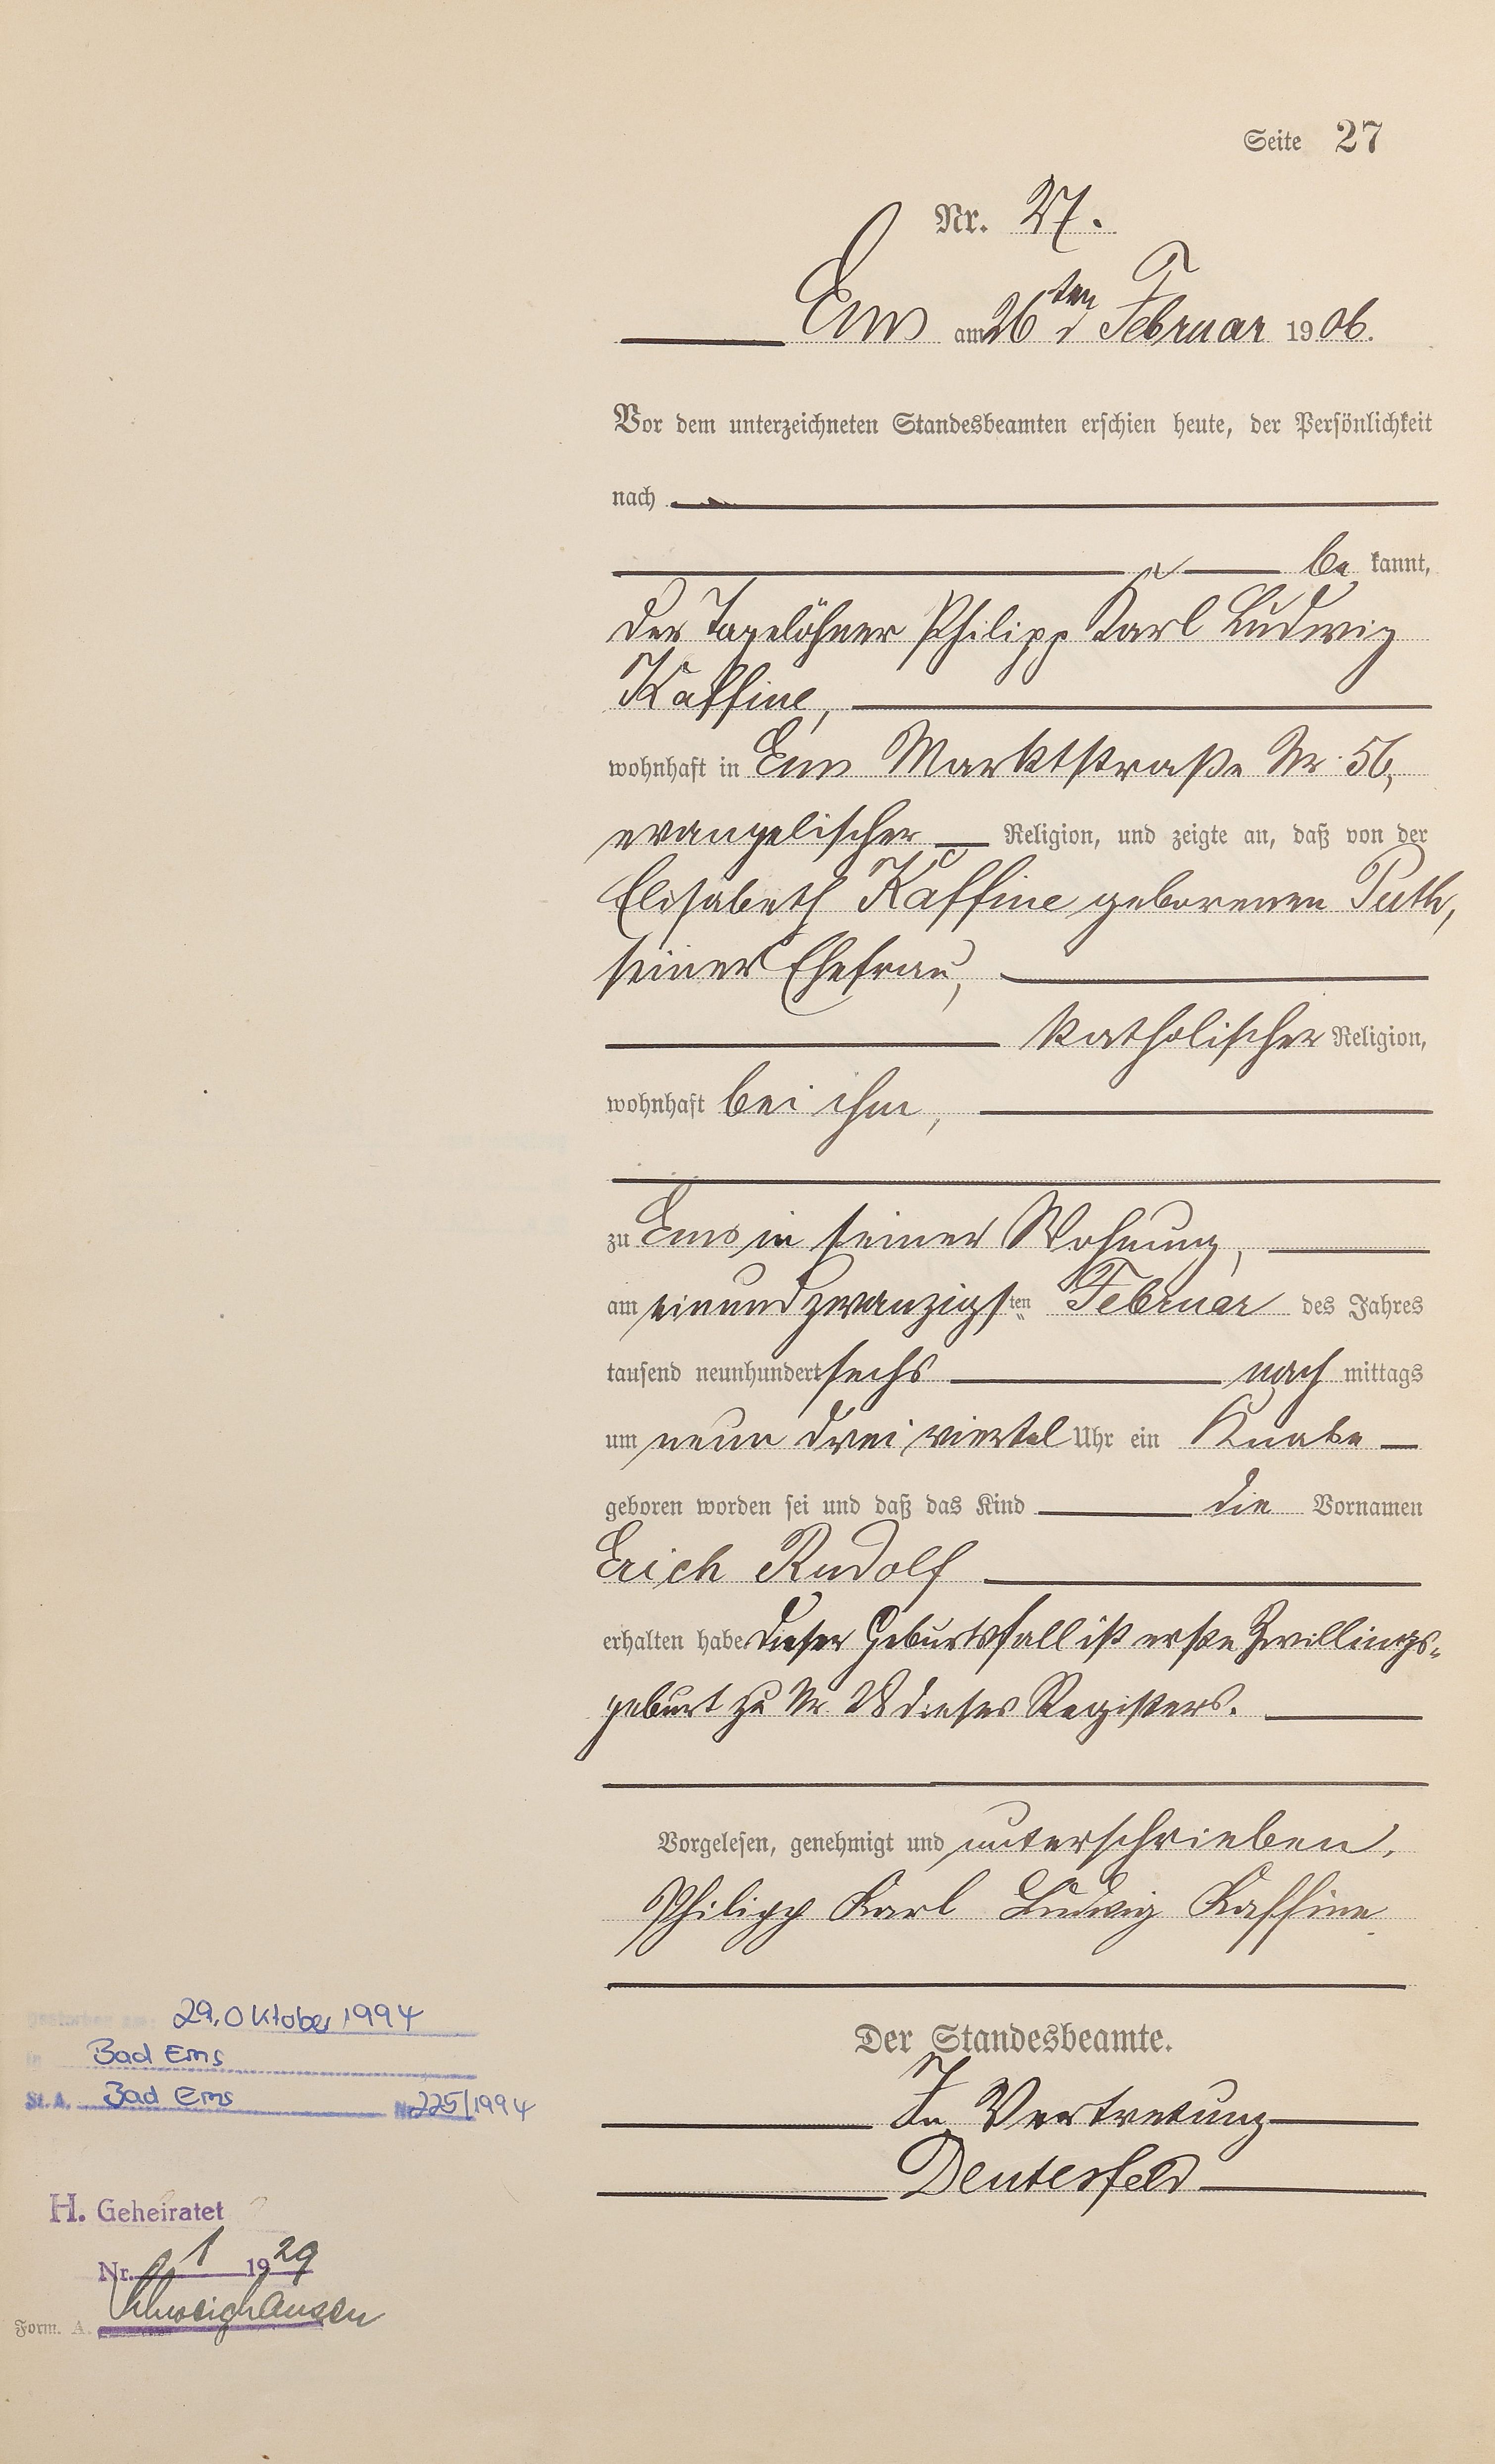 Seite 27
Nr. 27.
Ems am 26ten Februar 1906.
Vor dem unterzeichneten Standesbeamten erschien heute, der Persönlichkeit
nach
be kannt,
der Tagelöhner Philipp Karl Ludwig
Kaffine,
wohnhaft in Ems Marktstraße Nr. 56,
evangelischer Religion, und zeigte an, daß von der
Elisabeth Kaffine geborenen Puth,
seiner Ehefrau,
katholischer Religion,
wohnhaft bei ihm,
zu Ems in seiner Wohnung,
am einundzwanzigsten Februar des Jahres
tausend neunhundert sechs nach mittags
um neun drei viertel Uhr ein Knabe
geboren worden sei und daß das Kind die Vornamen
Erich Rudolf
erhalten habe. Dieser Geburtsfall ist erste Zwillings-
geburt zu Nr. 28 dieses Registers.
Vorgelesen, genehmigt und unterschrieben.
Philipp Karl Ludwig Kaffine
Der Standesbeamte.
In Vertretung
Deutesfeld
gestorben am: 29. Oktober 1994
in Bad Ems
St.A. Bad Ems Nr. 225/1994
H. Geheiratet
Nr. 1 1929
Schweighausen
Form. A.